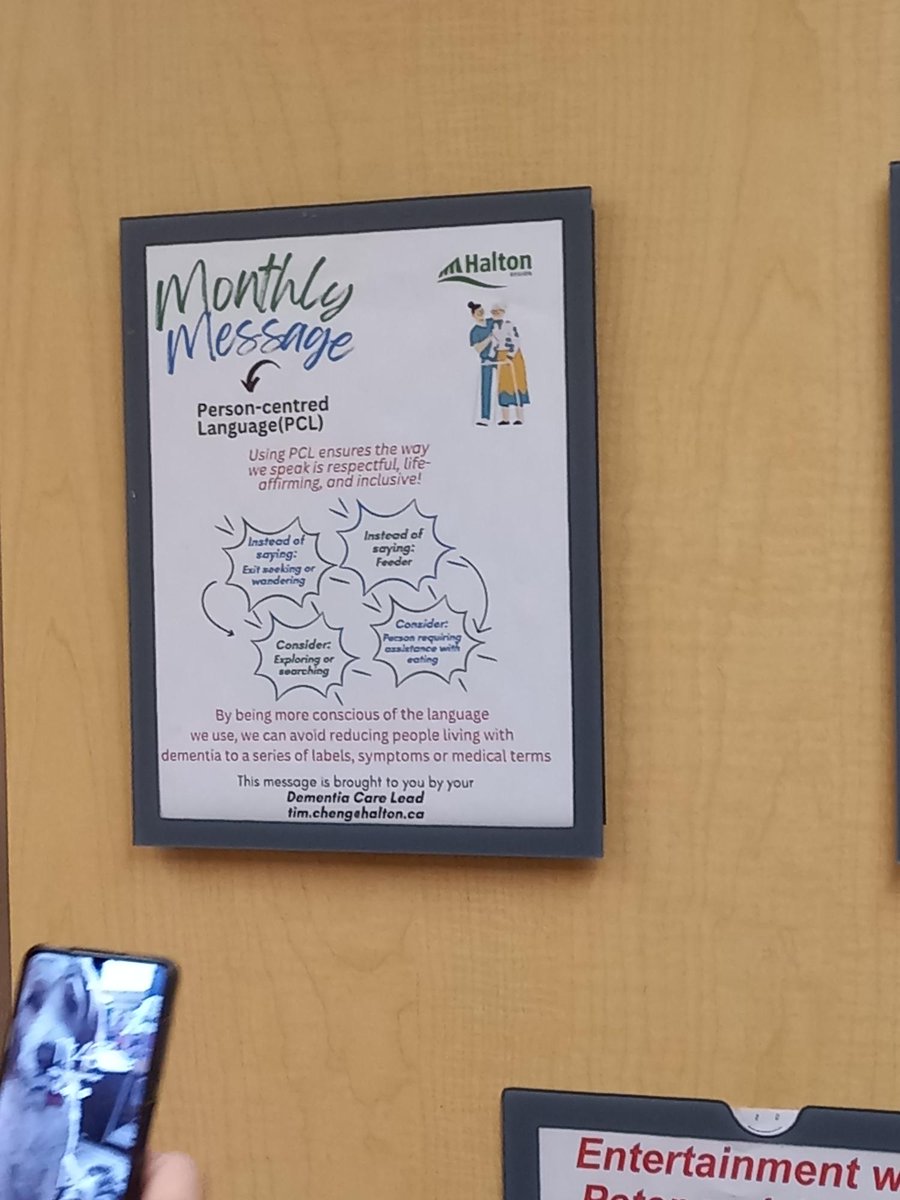 Monthly
Message
Halton
REGION
Person-centred
Language(PCL)
Using PCL ensures the way
we speak is respectful, life-
affirming, and inclusive!
Instead of
saying:
Exit seeking or
wandering
Instead of
saying:
Feeder
Consider:
Exploring or
searching
Consider:
Person requiring
assistance with
eating
By being more conscious of the language
we use, we can avoid reducing people living with
dementia to a series of labels, symptoms or medical terms
This message is brought to you by your
Dementia Care Lead
tim.cheng@halton.ca
Entertainment w